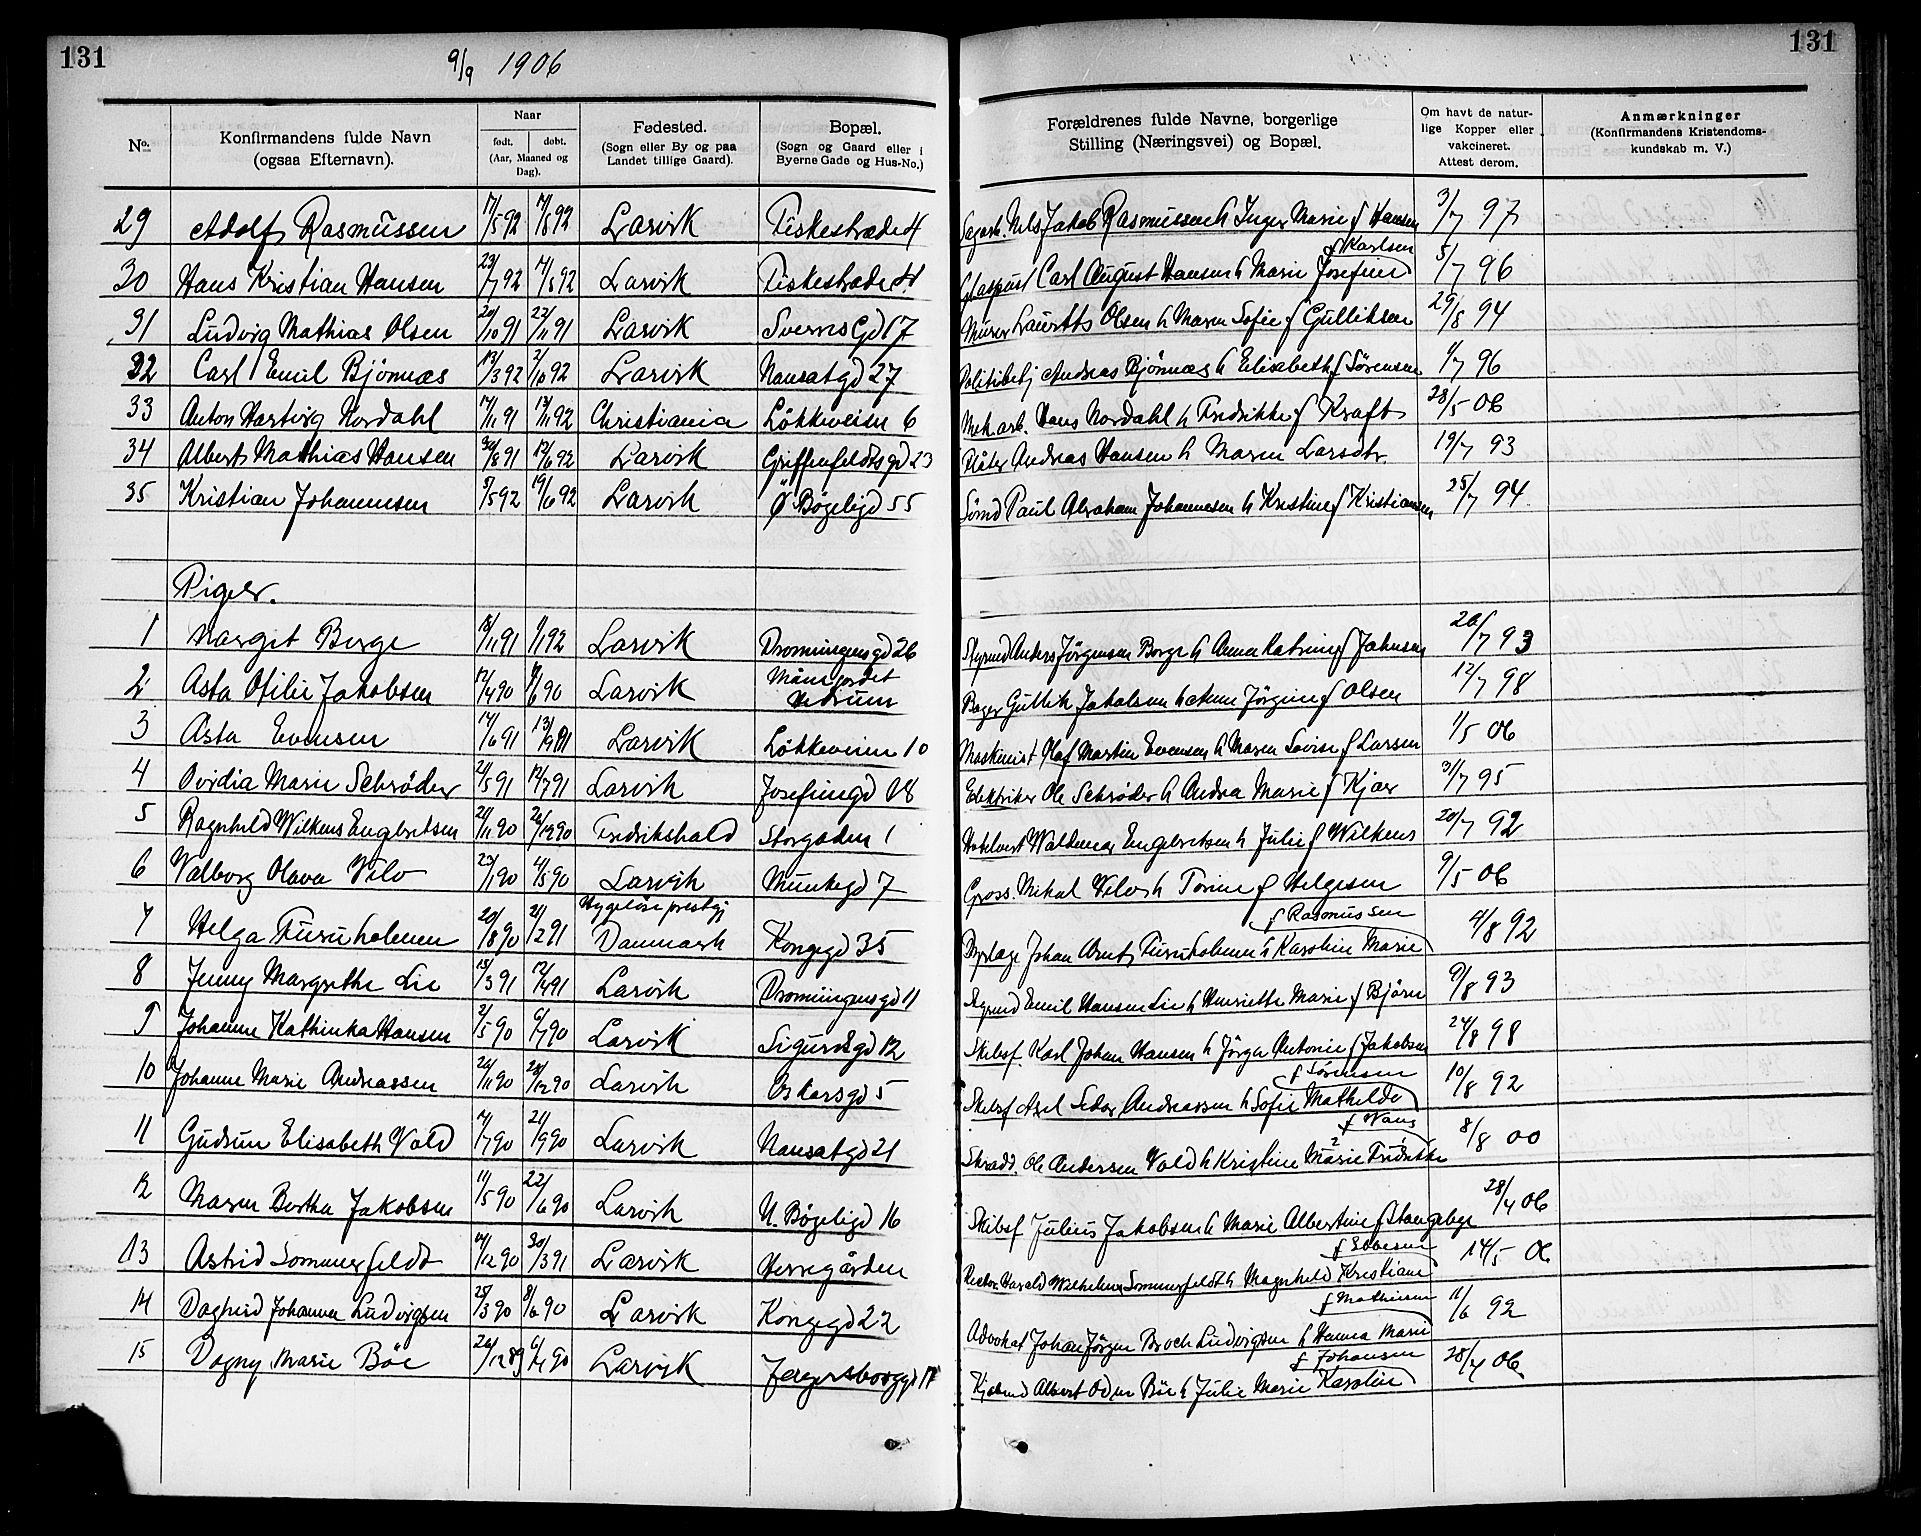 131
9/9 1906
131
No.
Konfirmandens fulde Navn
(ogsaa Efternavn).
Naar
født. døbt.
(Aar, Maaned og Dag).
Fødested.
(Sogn eller By og paa
Landet tillige Gaard).
Bopæl.
(Sogn og Gaard eller i
Byerne Gade og Hus-No.)
Forældrenes fulde Navne, borgerlige
Stilling (Næringsvei) og Bopæl.
Om havt de natur-
lige Kopper eller
vakcineret.
Attest derom.
Anmærkninger
(Konfirmandens Kristendoms-
kundskab m. V.)
29 Adolf Rasmussen 17/5 92 Larvik Fiskestræde 4 Nils Jakob Rasmussen h Inger Marie f Hansen 3/7 97
f Karlsen
30 Hans Kristian Hansen 23/7 92 Larvik Fiskestræde 4 Glaspust Carl August Hansen h Marie Josefine 5/7 96
31 Ludvig Mathias Olsen 20/10 91 22/11 91 Larvik Sverresgd 17 Murer Laurits Olsen h Maren Sofie f Gulliksen 29/8 94
32 Carl Emil Bjönnæs 13/3 92 2/10 92 Larvik Nansetgd 27 Politibetj Andreas Bjönnæs h Elisabeth f Sørensen 1/7 96
33 Anton Hartvig Nordahl 17/11 91 92 Christiania Løkkeveien 6 Mek.arb. Hans Nordahl h Fredrikke f Kraft 28/5 06
34 Albert Mathias Hansen 30/8 91 19/6 92 Larvik Griffenfeldtsgd 23 Andreas Hansen h Maren Larsdtr. 19/7 93
35 Kristian Johannesen 5/5 92 19/6 92 Larvik Ø Bøgeligd 55 Sömd Paul Abraham Johannesen h Kristine f Kristiansen 25/7 94.
Piger.
1 Margit Berge 18/11 91 1/1 92 Larvik Dronningensgd 26 Styrmd Anders Jörgensen Berge h Anna Katrine f Johnsen 20/7 93
2 Asta Otilie Jakobsen 12/4 90 8/6 90 Larvik Månejordet
Hedrum Bager Gullik Jakobsen h Anne Jörgine f Olsen 12/7 98
3 Asta Evensen 14/6 91 13/9 91 Larvik Løkkeveien 10 Maskinist Olaf Martin Evensen h Maren Lovise f Larsen 1/5 06
4 Ovidia Marie Schrøder 21/5 91 12/7 91 Larvik Josefinegd 18 Elektriker Ole Schrøder h Andrea Marie f Kjær 31/7 95
5 Ragnhild Wilkens Engebretsen 21/11 90 26/12 90 Fredrikshald Storgaden 1 Hotelvert Waldemar Engebretsen h Julie f Wilkens 20/7 92
6 Valborg Olava Vilo 29/1 90 4/5 90 Larvik Munkegd 7 Gross. Mikal Vilo h Torine f Helgesen 9/5 06
Hygeløse prestgj f Rasmussen
7 Helga Furuholmen 20/8 90 21/2 91 Danmark Kongegd 35 Dyrlæge Johan Arnt Furuholmen h Karoline Marie 4/8 92
8 Jenny Margrethe Lie 15/3 91 12/4 91 Larvik Dronningensgd 11 Styrmd Emil Hansen Lie h Henriette Marie f Björn 9/8 93
9 Johanne Kathinka Hansen 2/5 90 6/7 90 Larvik Sigurdsgd 12 Skibsf. Karl Johan Hansen h Jörga Antonie f Jakobsen 24/8 98
f Sörensen
10 Johanne Marie Andreassen 26/11 90 28/12 90 Larvik Oskarsgd 5 Skibsf Axel Sedor Andreassen h Sofie Mathilde 10/8 92
f Wang
11 Gudrun Elisabeth Vold 7/7 90 21/9 90 Larvik Nansetgd 21 Skrædd. Ole Andersen Vold h Kristine Marie Fredrikke 8/8 00
12 Maren Bertha Jakobsen 11/5 90 22/6 90 Larvik N. Bøgeligd 16 Skibsf Julius Jakobsen h Marie Albertine f Stangebye 28/4 06
f Ebbesen
13 Astrid Sommerfeldt 14/12 90 30/3 91 Larvik Herregården Rektor Harald Wilhelm Sommerfeldt h Magnhild Kristiane 14/5 06
f Mathiesen
14 Dagfrid Johanna Ludvigsen 25/3 90 8/6 90 Larvik Kongegd 22 Advokat Johan Jörgen Broch Ludvigsen h Hanna Marie 11/6 92
f Johansen
15 Dagny Marie Böe 26/12 89 6/4 90 Larvik Jegersborggd 17 Kjöbmd Albert Oden Böe h Julie Marie Karoline 28/4 06